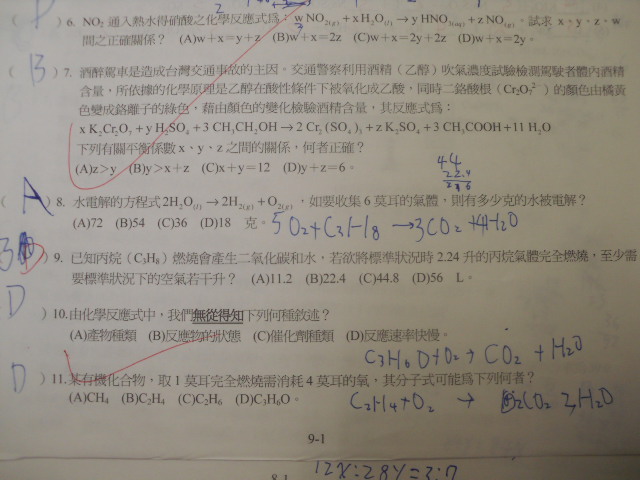 6. NO₂ 通入熱水得硝酸之化學反應式為：w NO₂(g)+x H₂O(l)→y HNO₃(aq)+z NO(g)。試求 x、y、z、w
間之正確關係？ (A)w+x=y+z (B)w+x=2z (C)w+x=2y+2z (D)w+x=2y。
( B )7. 酒醉駕車是造成台灣交通事故的主因。交通警察利用酒精（乙醇）吹氣濃度試驗檢測駕駛者體內酒精
含量，所依據的化學原理是乙醇在酸性條件下被氧化成乙酸，同時二鉻酸根（Cr₂O₇²⁻）的顏色由橘黃
色變成鉻離子的綠色，藉由顏色的變化檢驗酒精含量，其反應式爲：
x K₂Cr₂O₇+y H₂SO₄+3 CH₃CH₂OH→2 Cr₂(SO₄)₃+z K₂SO₄+3 CH₃COOH+11 H₂O
下列有關平衡係數 x、y、z 之間的關係，何者正確？
(A)z>y (B)y>x+z (C)x+y=12 (D)y+z=6。
44
22.4
( A )8. 水電解的方程式 2H₂O(l)→2H₂(g)+O₂(g)，如要收集 6 莫耳的氣體，則有多少克的水被電解？
(A)72 (B)54 (C)36 (D)18 克。
5O₂+C₃H₈→3CO₂+4H₂O
)9. 已知丙烷（C₃H₈）燃燒會產生二氧化碳和水，若欲將標準狀況時 2.24 升的丙烷氣體完全燃燒，至少需
要標準狀況下的空氣若干升？ (A)11.2 (B)22.4 (C)44.8 (D)56 L。
D )10.由化學反應式中，我們無從得知下列何種敘述？
(A)產物種類 (B)反應物的狀態 (C)催化劑種類 (D)反應速率快慢。
C₃H₆O+O₂→CO₂+H₂O
D )11.某有機化合物，取 1 莫耳完全燃燒需消耗 4 莫耳的氧，其分子式可能爲下列何者？
(A)CH₄ (B)C₂H₄ (C)C₂H₆ (D)C₃H₆O。
C₂H₄+O₂ → 2CO₂ 2H₂O
9-1
12X:28Y=3:7